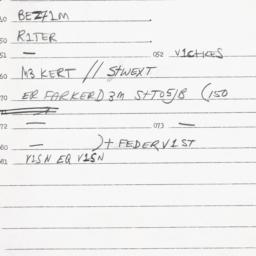 40 BEZ/1M
50 R1TER
51 — 052 V1CHKES
60 M3 KERT // STWEXT
70 ER FARKERD 3M STTO5/8 (150
72 — 073 —
80 — ) + FEDERV1ST
81 V1SN EQ V1SN